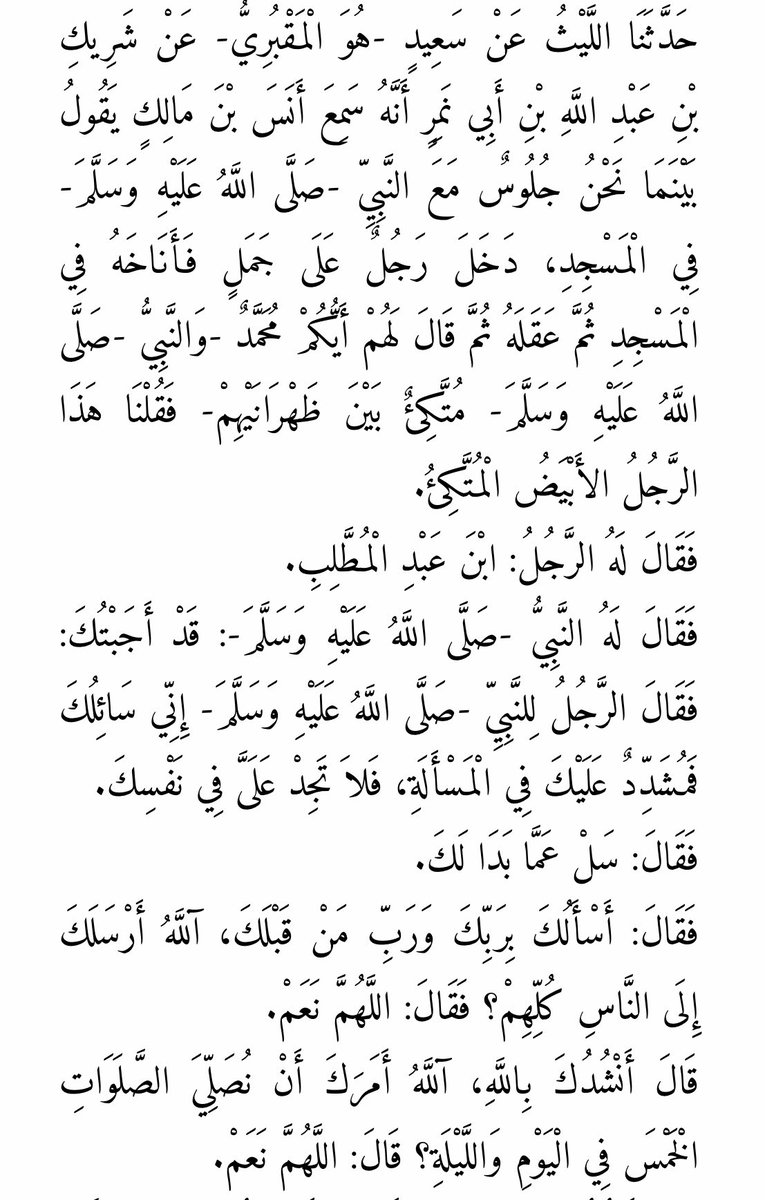 حَدَّثَنَا اللَّيْثُ عَنْ سَعِيدٍ -هُوَ الْمَقْبُرِيُّ- عَنْ شَرِيكِ
بْنِ عَبْدِ اللَّهِ بْنِ أَبِي نَمِرٍ أَنَّهُ سَمِعَ أَنَسَ بْنَ مَالِكٍ يَقُولُ
بَيْنَمَا نَحْنُ جُلُوسٌ مَعَ النَّبِيِّ -صَلَّى اللَّهُ عَلَيْهِ وَسَلَّمَ-
فِي الْمَسْجِدِ، دَخَلَ رَجُلٌ عَلَى جَمَلٍ فَأَنَاخَهُ فِي
الْمَسْجِدِ ثُمَّ عَقَلَهُ ثُمَّ قَالَ لَهُمْ أَيُّكُمْ مُحَمَّدٌ -وَالنَّبِيُّ -صَلَّى
اللَّهُ عَلَيْهِ وَسَلَّمَ- مُتَّكِئٌ بَيْنَ ظَهْرَانَيْهِمْ- فَقُلْنَا هَذَا
الرَّجُلُ الأَبْيَضُ الْمُتَّكِئُ.
فَقَالَ لَهُ الرَّجُلُ: ابْنَ عَبْدِ الْمُطَّلِبِ.
فَقَالَ لَهُ النَّبِيُّ -صَلَّى اللَّهُ عَلَيْهِ وَسَلَّمَ-: قَدْ أَجَبْتُكَ:
فَقَالَ الرَّجُلُ لِلنَّبِيِّ -صَلَّى اللَّهُ عَلَيْهِ وَسَلَّمَ- إِنِّي سَائِلُكَ
فَمُشَدِّدٌ عَلَيْكَ فِي الْمَسْأَلَةِ، فَلاَ تَجِدْ عَلَىَّ فِي نَفْسِكَ.
فَقَالَ: سَلْ عَمَّا بَدَا لَكَ.
فَقَالَ: أَسْأَلُكَ بِرَبِّكَ وَرَبِّ مَنْ قَبْلَكَ، آللَّهُ أَرْسَلَكَ
إِلَى النَّاسِ كُلِّهِمْ؟ فَقَالَ: اللَّهُمَّ نَعَمْ.
قَالَ أَنْشُدُكَ بِاللَّهِ، آللَّهُ أَمَرَكَ أَنْ نُصَلِّيَ الصَّلَوَاتِ
الْخَمْسَ فِي الْيَوْمِ وَاللَّيْلَةِ؟ قَالَ: اللَّهُمَّ نَعَمْ.